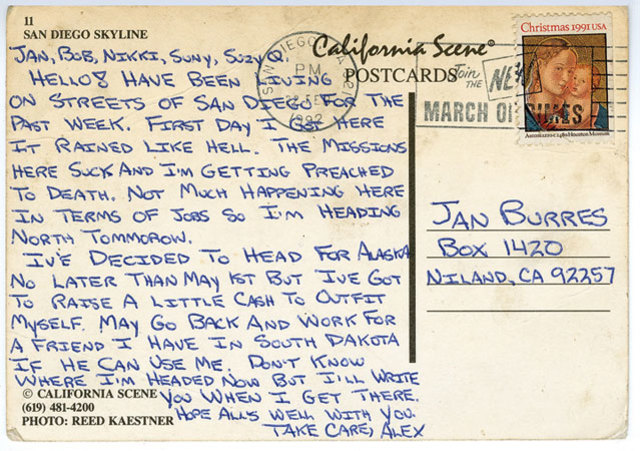 11
SAN DIEGO SKYLINE
California Scene®
POSTCARDS
JAN, BOB, NIKKI, SUNY, SUZY Q.
HELLO! HAVE BEEN LIVING
ON STREETS OF SAN DIEGO FOR THE
PAST WEEK. FIRST DAY I GOT HERE
IT RAINED LIKE HELL. THE MISSIONS
HERE SUCK AND I'M GETTING PREACHED
TO DEATH. NOT MUCH HAPPENING HERE
IN TERMS OF JOBS SO I'M HEADING
NORTH TOMMOROW.
IV'E DECIDED TO HEAD FOR ALASKA
NO LATER THAN MAY 1ST BUT I'VE GOT
TO RAISE A LITTLE CASH TO OUTFIT
MYSELF. MAY GO BACK AND WORK FOR
A FRIEND I HAVE IN SOUTH DAKOTA
IF HE CAN USE ME. DON'T KNOW
WHERE I'M HEADED NOW BUT I'LL WRITE
YOU WHEN I GET THERE.
HOPE ALLS WELL WITH YOU
TAKE CARE, ALEX
© CALIFORNIA SCENE
(619) 481-4200
PHOTO: REED KAESTNER
SAN DIEGO
PM
1992
Join
THE
MARCH OF DIMES
Christmas 1991 USA
JAN BURRES
BOX 1420
NILAND, CA 92257